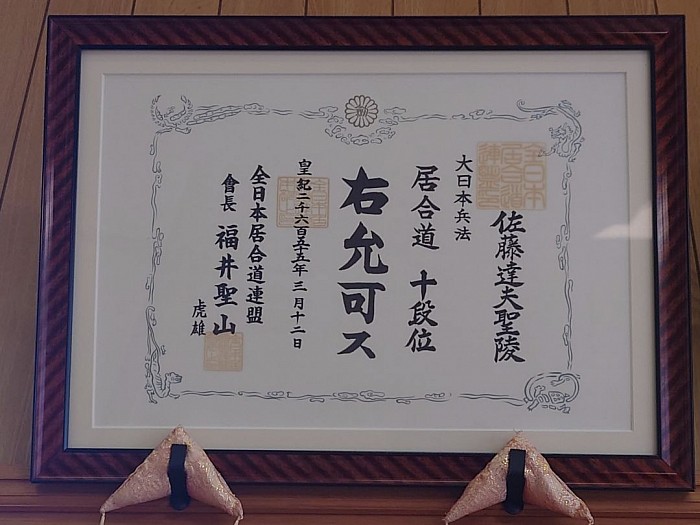 全日本
居合道
連盟印
佐藤達夫聖陵
大日本兵法
居合道 十段位
右允可ス
皇紀二千六百五十五年三月十二日
全日本居合道連盟
會長 福井聖山
虎雄